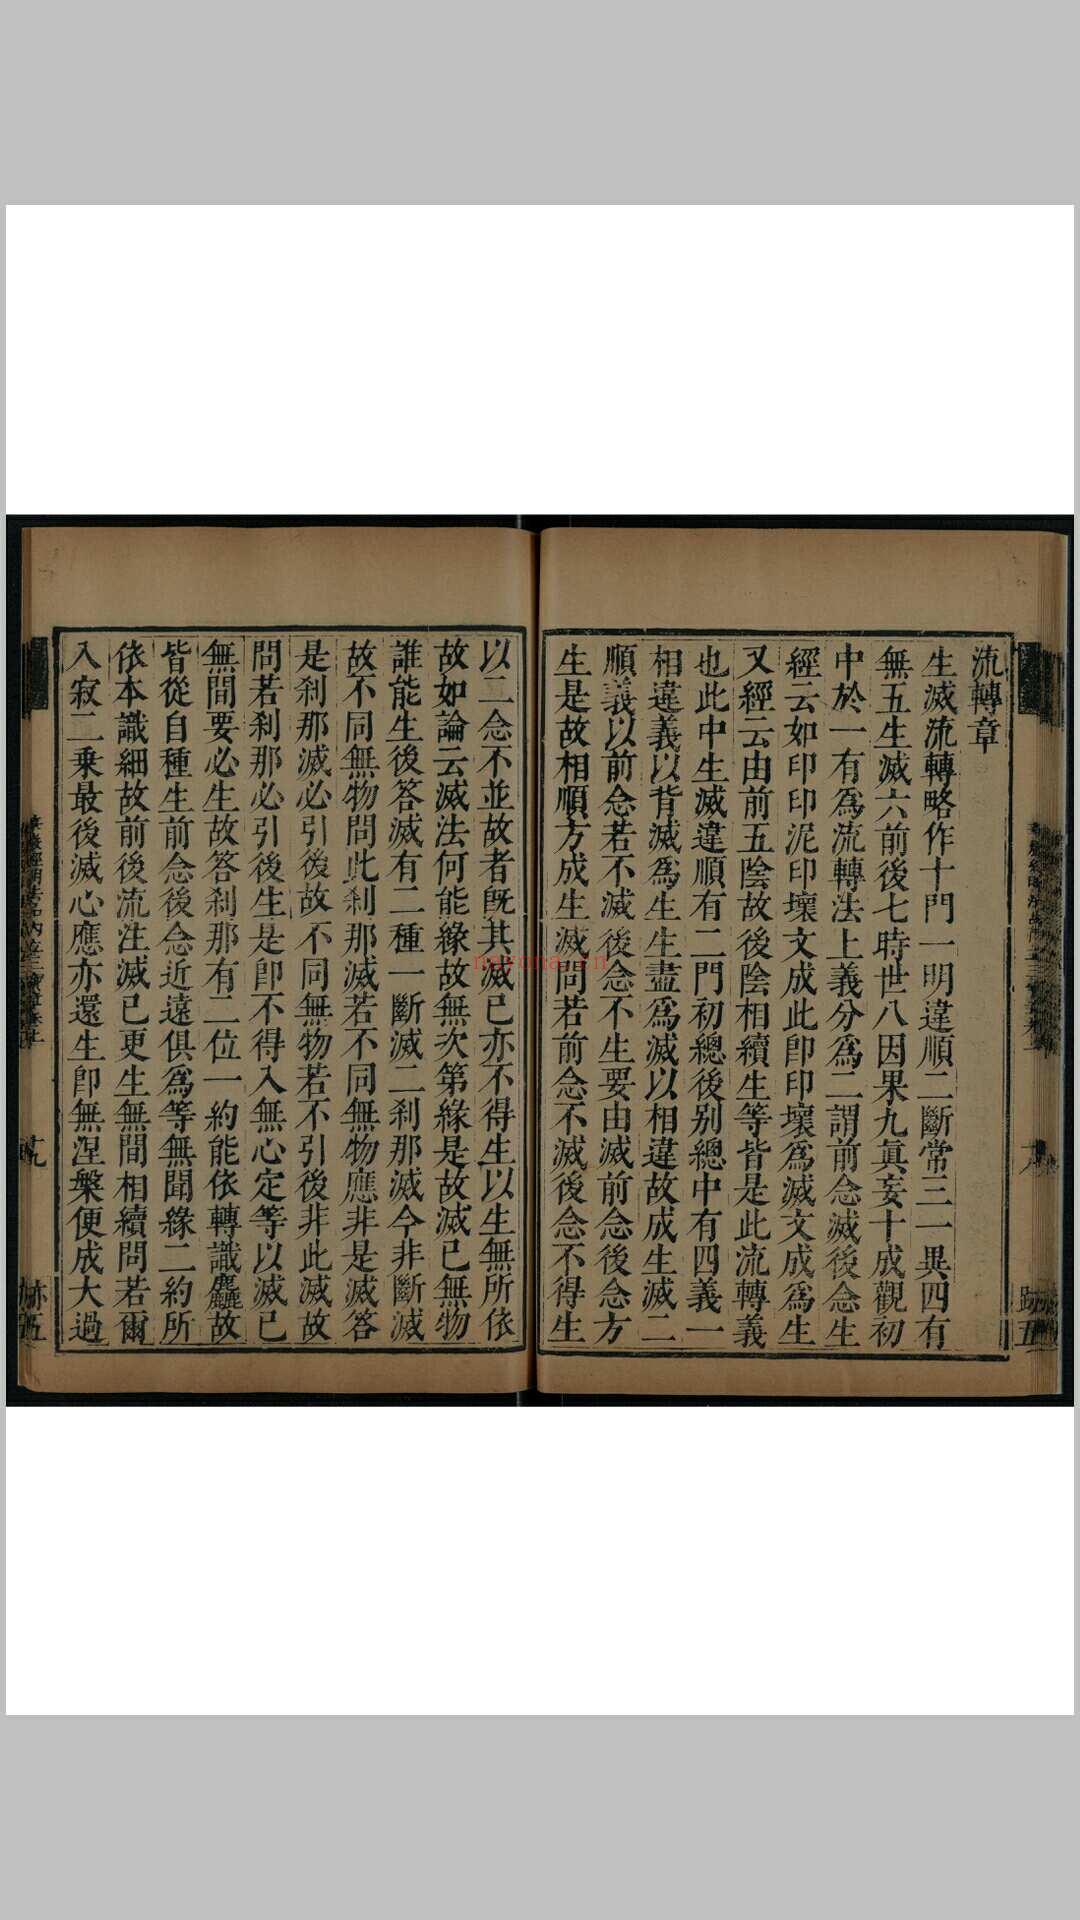 流轉章
生滅流轉略作十門一明違順二斷常三一異四有
無五生滅六前後七時世八因果九眞妄十成觀初
中於一有爲流轉法上義分爲二謂前念滅後念生
經云如印印泥印壞文成此卽印壞爲滅文成爲生
又經云由前五陰故後陰相續生等皆是此流轉義
也此中生滅違順有二門初總後別總中有四義一
相違義以背滅爲生生盡爲滅以相違故成生滅二
順義以前念若不滅後念不生要由滅前念後念方
生是故相順方成生滅問若前念不滅後念不得生
以二念不並故者旣其滅已亦不得生以生無所依
故如論云滅法何能緣故無次第緣是故滅已無物
誰能生後答滅有二種一斷滅二刹那滅今非斷滅
故不同無物問此刹那滅若不同無物應非是滅答
是刹那滅必引後故不同無物若不引後非此滅故
問若刹那必引後生是卽不得入無心定等以滅已
無間要必生故答刹那有二位一約能依轉識麤故
皆從自種生前念後念近遠俱爲等無間緣二約所
依本識細故前後流注滅已更生無間相續問若爾
入寂二乗最後滅心應亦還生卽無涅槃便成大過
十九
五